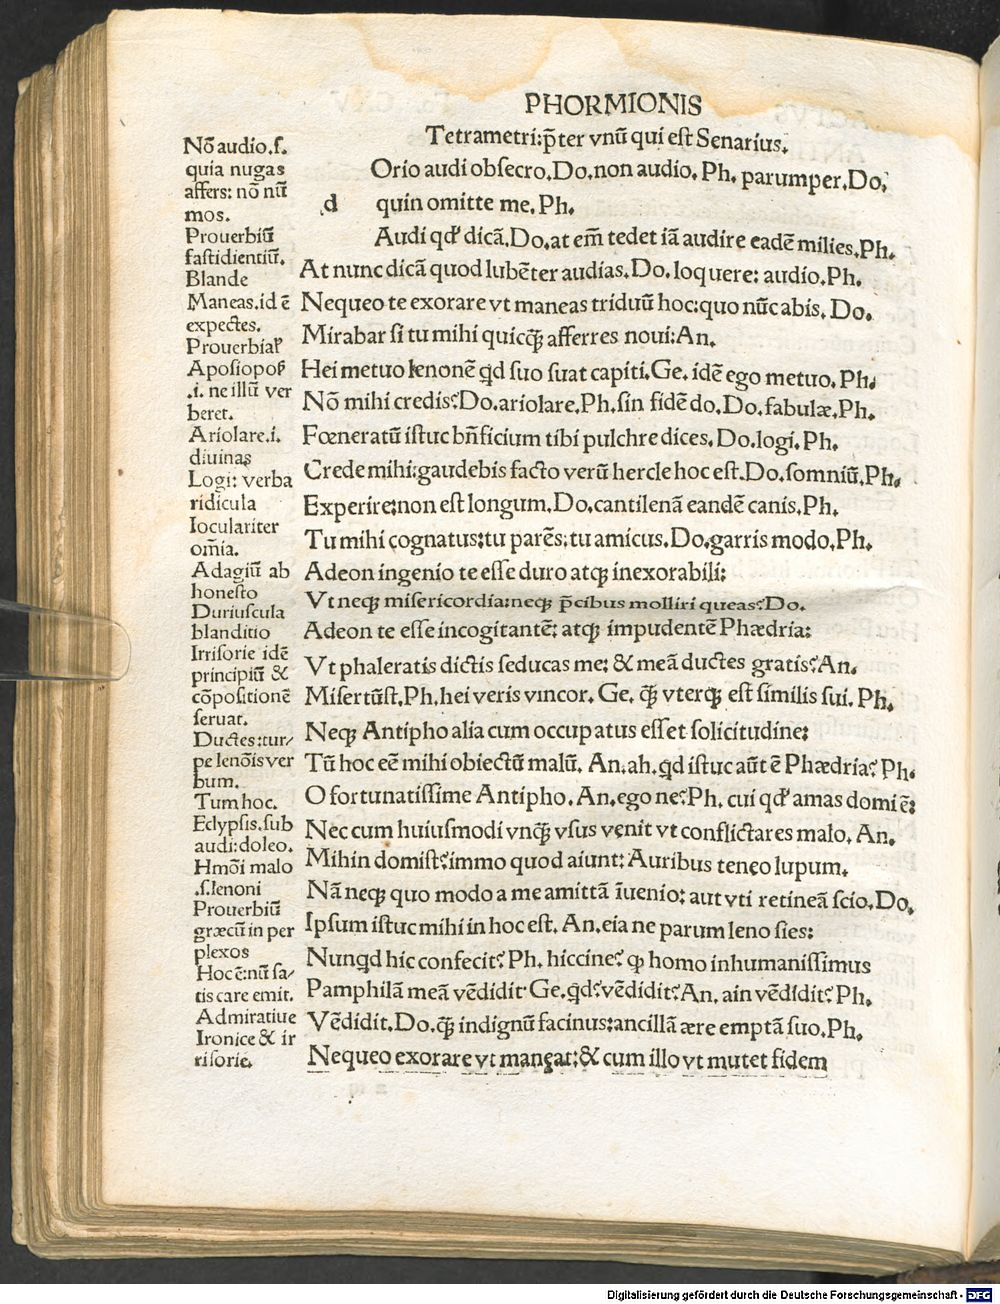 PHORMIONIS
Tetrametri:p̄ter vnū qui eſt Senarius.
d
Orio audi obſecro.Do.non audio.Ph.parumper.Do.
quin omitte me.Ph.
Audi qđ dicā.Do.at em̄ tedet iā audire eadē milies.Ph.
At nunc dicā quod lubēter audias.Do.loquere:audio.Ph.
Nequeo te exorare vt maneas triduū hoc:quo nūc abis.Do.
Mirabar ſi tu mihi quicq̄ʒ afferres noui:An.
Hei metuo lenonē qd ſuo ſuat capiti.Ge.idē ego metuo.Ph.
Nō mihi credis?Do.ariolare.Ph.ſin fidē do.Do.fabulæ.Ph.
Fœneratū iſtuc bn̄ficium tibi pulchre dices.Do.logi.Ph.
Crede mihi:gaudebis facto verū hercle hoc eſt.Do.ſomniū.Ph.
Experire:non eſt longum.Do.cantilenā eandē canis.Ph.
Tu mihi cognatus:tu parēs:tu amicus.Do.garris modo.Ph.
Adeon ingenio te eſſe duro atqʒ inexorabili:
Vt neqʒ miſericordia:neqʒ p̄cibus molliri queas?Do.
Adeon te eſſe incogitantē:atqʒ impudentē Phædria:
Vt phaleratis dictis ſeducas me:& meā ductes gratis?An.
Miſertūſt.Ph.hei veris vincor.Ge.q̄ʒ vterqʒ eſt ſimilis ſui.Ph.
Neqʒ Antipho alia cum occupatus eſſet ſolicitudine:
Tū hoc eē mihi obiectū malū.An.ah.qd iſtuc aūt ē Phædria?Ph.
O fortunatiſſime Antipho.An.ego ne?Ph.cui qđ amas domi ē:
Nec cum huiuſmodi vnq̄ʒ vſus venit vt conflictares malo.An.
Mihin domiſt?immo quod aiunt:Auribus teneo lupum.
Nā neqʒ quo modo a me amittā īuenio:aut vti retineā ſcio.Do.
Ipſum iſtuc mihi in hoc eſt.An.eia ne parum leno ſies:
Nunqd hic confecit?Ph.hiccine?ꝙ homo inhumaniſſimus
Pamphilā meā vēdidit Ge.qd?vēdidit?An.ain vēdidit?Ph.
Vēdidit.Do.q̄ʒ indignū facinus:ancillā ære emptā ſuo.Ph.
Nequeo exorare vt maneat:& cum illo vt mutet fidem
Nō audio.ſ.
quia nugas
affers:nō nū
mos.
Prouerbiū
faſtidientiū.
Blande
Maneas.id ē
expectes.
Prouerbial'
Apoſiopoſ'
.i. ne illū ver
beret.
Ariolare.i.
diuinas
Logi:verba
ridicula
Ioculariter
om̄ia.
Adagiū ab
honeſto
Duriuſcula
blanditio
Irriſorie idē
principiū &
cōpoſitionē
ſeruat.
Ductes:tur/
pe lenōis ver
bum.
Tum hoc.
Eclypſis.ſub
audi:doleo.
Hmōi malo
.ſ.lenoni
Prouerbiū
græcū in per
plexos
Hoc ē:nū ſa/
tis care emit.
Admiratiue
Ironice & ir
riſorie.
Digitalisierung gefördert durch die Deutsche Forschungsgemeinschaft - DFG